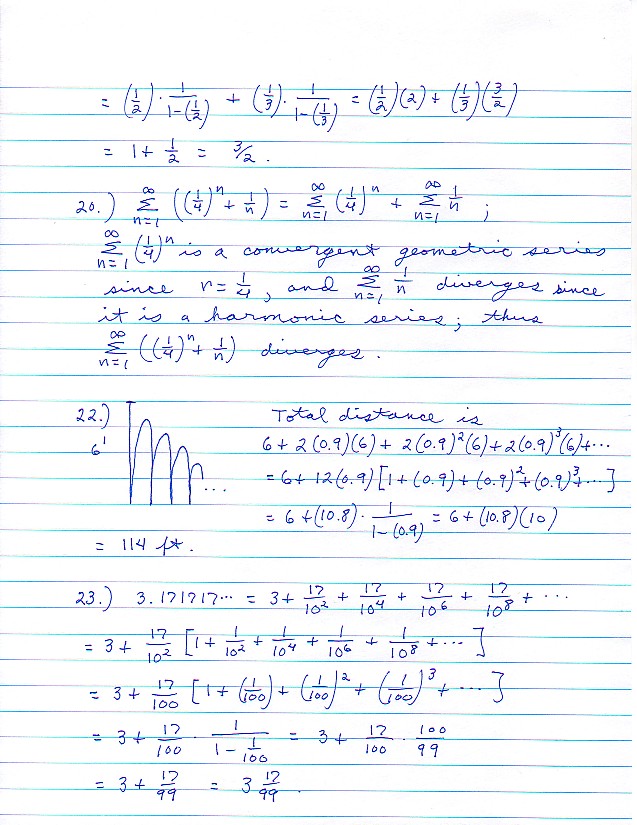 = (1/2) · 1/(1-(1/2)) + (1/3) · 1/(1-(1/3)) = (1/2)(2) + (1/3)(3/2)
= 1 + 1/2 = 3/2 .
20.) ∞Σn=1 ((1/4)^n + 1/n) = ∞Σn=1 (1/4)^n + ∞Σn=1 1/n ;
∞Σn=1 (1/4)^n is a convergent geometric series
since r = 1/4 , and ∞Σn=1 1/n diverges since
it is a harmonic series ; thus
∞Σn=1 ((1/4)^n + 1/n) diverges .
22.) Total distance is
6' 6 + 2(0.9)(6) + 2(0.9)^2(6) + 2(0.9)^3(6) + ···
= 6 + 12(0.9) [1 + (0.9) + (0.9)^2 + (0.9)^3 + ···]
... = 6 + (10.8) · 1/(1-(0.9)) = 6 + (10.8)(10)
= 114 ft .
23.) 3.171717··· = 3 + 17/10^2 + 17/10^4 + 17/10^6 + 17/10^8 + ···
= 3 + 17/10^2 [1 + 1/10^2 + 1/10^4 + 1/10^6 + 1/10^8 + ···]
= 3 + 17/100 [1 + (1/100) + (1/100)^2 + (1/100)^3 + ···]
= 3 + 17/100 · 1/(1 - 1/100) = 3 + 17/100 · 100/99
= 3 + 17/99 = 3 17/99 .